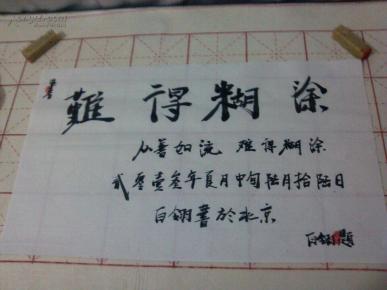 難得糊涂
从善如流 难得糊涂
贰零壹叁年夏月中旬陆月拾陆日
白翎書於北京
白翎題